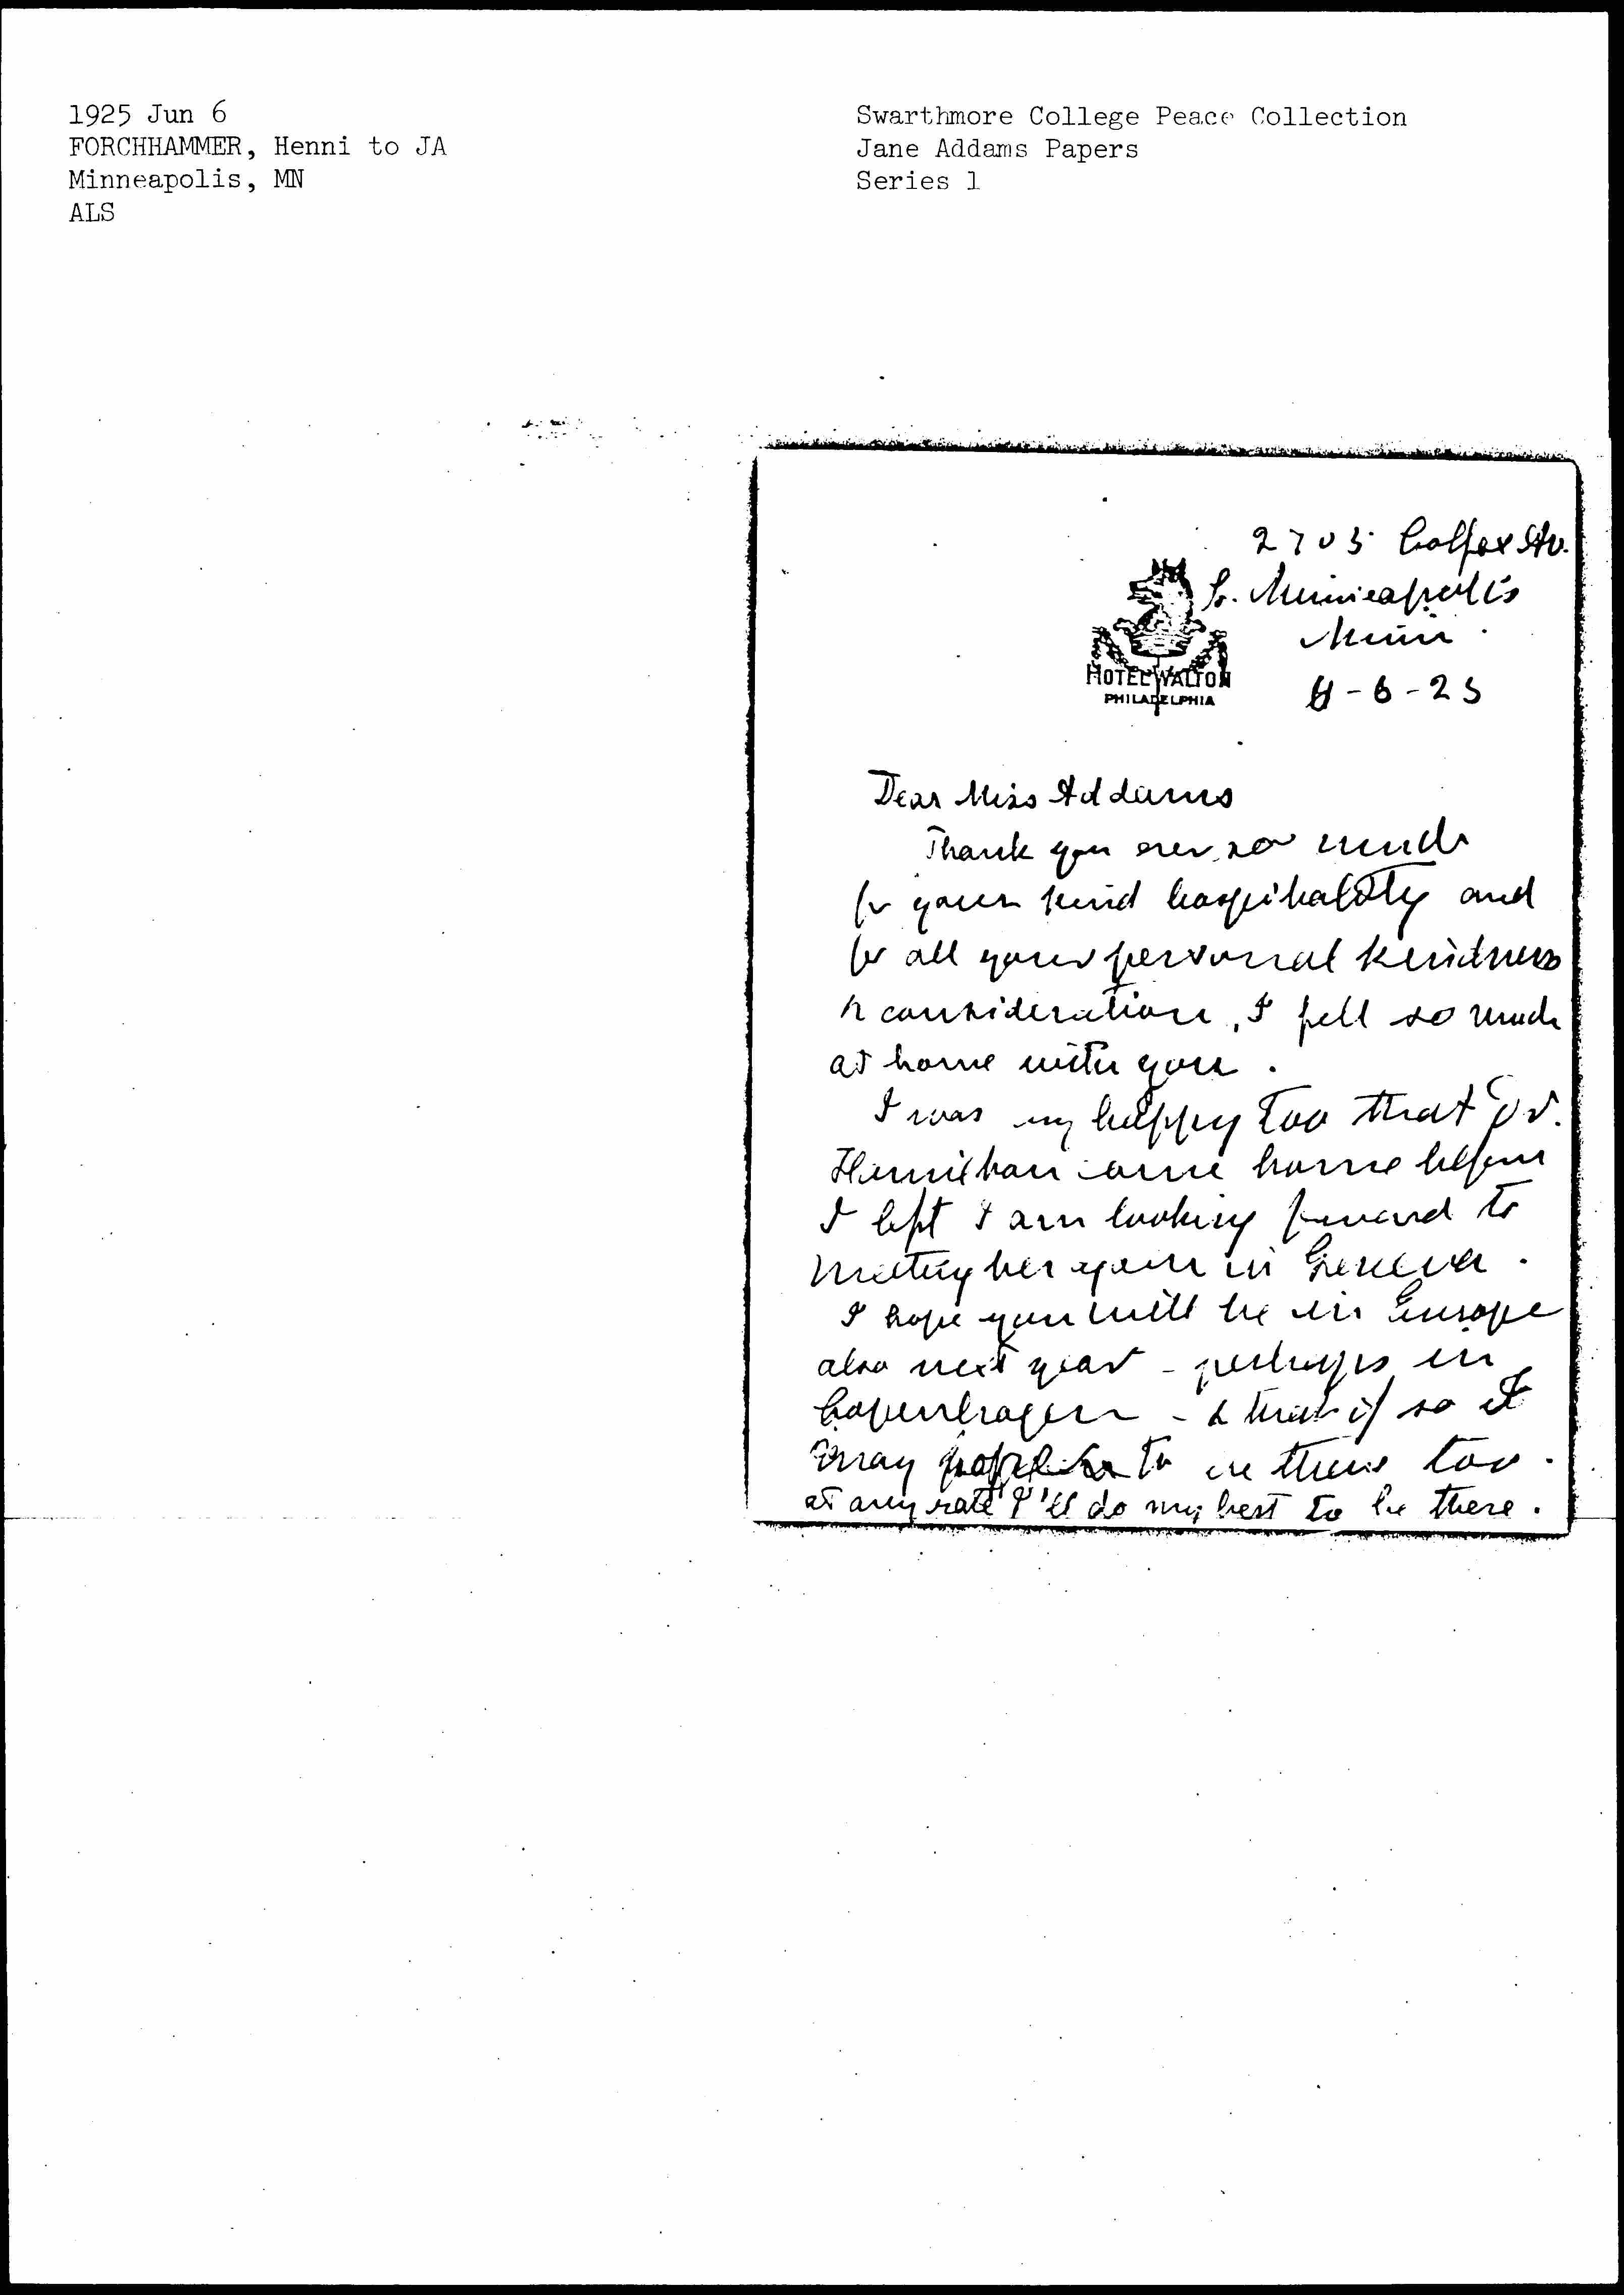 1925 Jun 6
FORCHHAMMER, Henni to JA
Minneapolis, MN
ALS
Swarthmore College Peace Collection
Jane Addams Papers
Series 1
2705 Colfax Av.
S. Minneapolis
Minn.
6-6-25
HOTEL WALTON
PHILADELPHIA
Dear Miss Addams
Thank you ever so much
for your kind hospitality and
for all your personal kindness
& consideration, I felt so much
at home with you.
I was very happy too that Dr.
Hamilton came home before
I left I am looking forward to
meeting her again in Geneva.
I hope you will be in Europe
also next year - perhaps in
Copenhagen - & that if so I
may to be there too.
at any rate I'll do my best to be there.